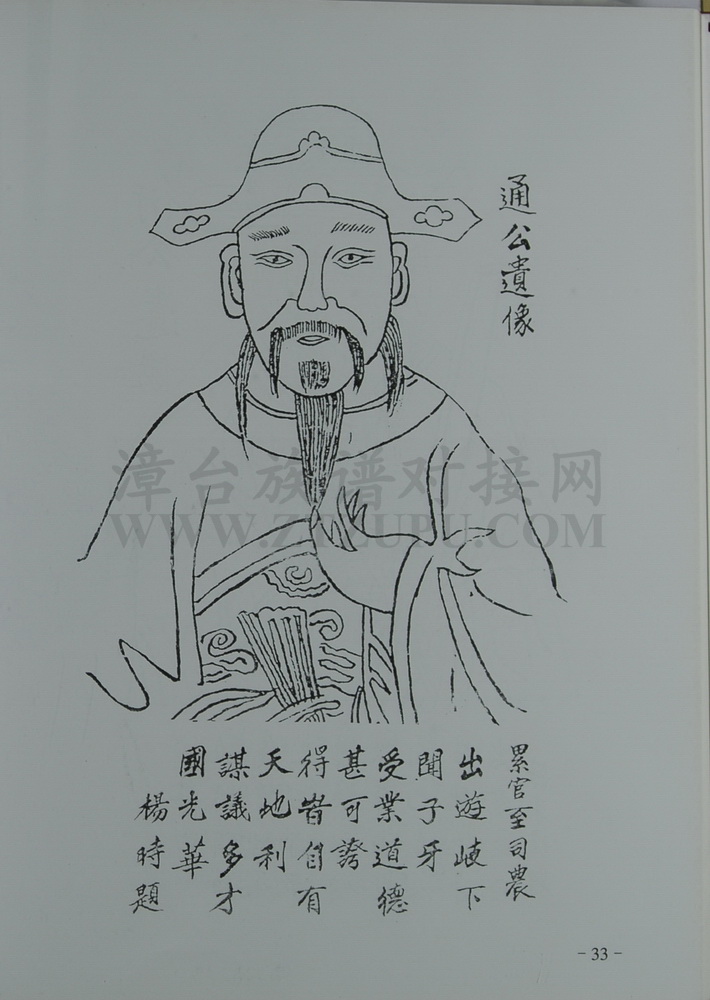 通公遺像
漳台族谱对接网
WWW.ZTZUPU.COM
累官至司農
出遊岐下
聞子牙
受業道德
甚可誇
得皆自有
天地利
謀議多才
國光華
楊時題
- 33 -